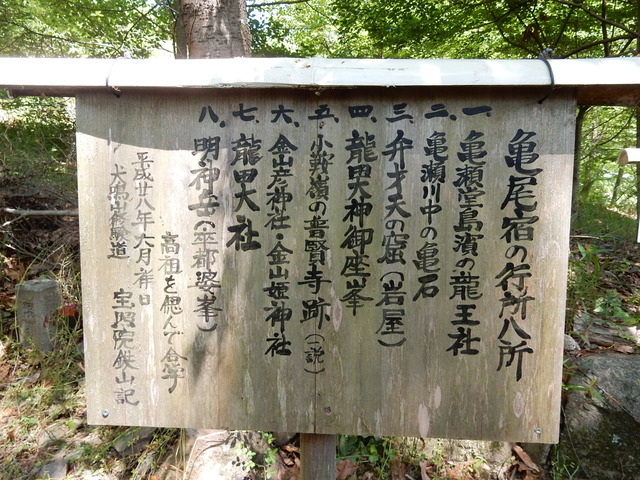 亀尾宿の行所八所
一、亀瀬堂島濱の龍王社
二、亀瀬川中の亀石
三、弁才天の窟(岩屋)
四、龍田大神御座峯
五、小鞍嶺の普賢寺跡(一説)
六、金山彦神社・金山姫神社
七、龍田大社
八、明神岳(卒都婆峯)
高祖を偲んで合掌
平成廿八年六月祥日
犬鳴山修験道
鉄山記